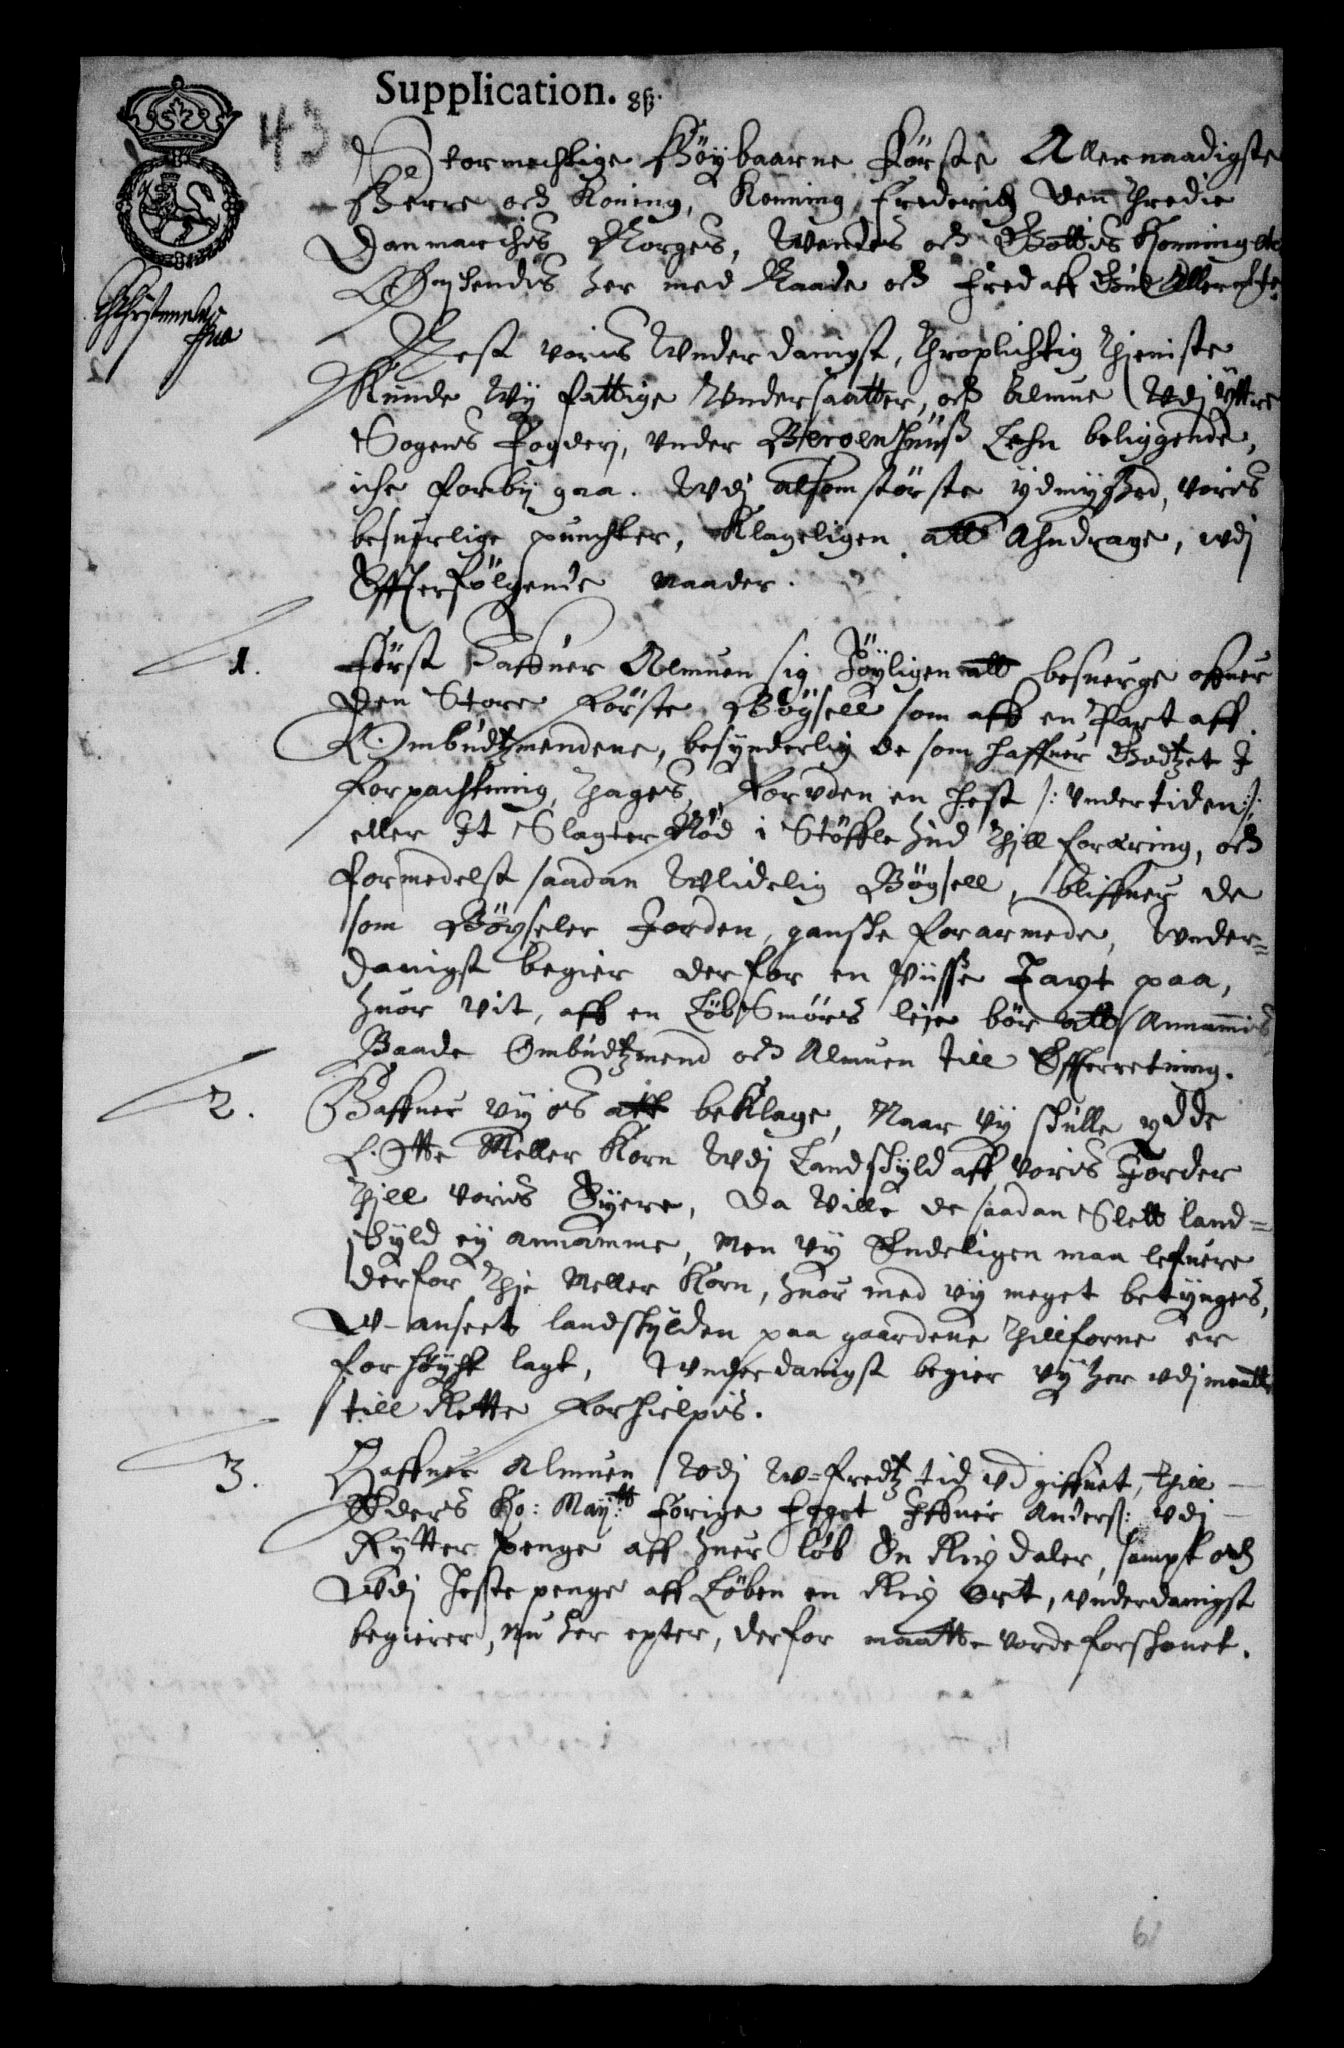 Supplication. 8ß.
43
Stormechtige Høybaarne Første Allernaadigste
Herre och Koning, Konning Frederich den Thredie
Danmarchis Norges, Wendes och Gottis Konning etc
Ønskendis her med Naade och Fred aff Gud
Nest voris Wnderdanigst, throplichtig thieniste
Kunde Wy fattige Wndersaatter, och Almue Wdj Yttre
Sogens Fogderj, vnder Bergenhuuß Lehn beliggende,
iche forby gaa. Wdj alsom største ydmyghed, voris
besuerlige punchter, Klageligen att Ahndrage, vdj
Effterfølgende maader.
1. Først haffuer Almuen sig høyligen att besuerge offuer
den Store første Bøgsell som aff en Part aff
Ombudtzmendene, besynderlig de som haffuer Godtzet J
forpachtning, thages, Foruden en hest /: vndertiden :/
eller Jt Slagter Nød i Støffle hud thill foræring, och
formedelst saadan Wlidelig Bøgsell, bliffuer de
som Bøgseler Jorden, ganske forarmede, Wnder=
danigst begier derfor en Viisse Taxt paa,
huor vit, aff en Løb Smørs leje bør att Annammis
Baade Ombudtzmend och Almuen till Effterretning.
2. Haffuer vy os att beklage, Naar vy skulle ydde
Otte Meller Korn Wdj Landskyld aff voris Jorder
thill voris Eyere, da Wille de saadan Slett land=
skyld ey annamme, Men vy Endeligen maa lefuere
derfor thje Meller Korn, huor med vy meget betynges,
W-anseet landskylden paa gaardene thillforne er
forhøyet lagt, Wnderdanigst begier vy her vdj maatte
till Rette Forhielpis.
3. Haffuer Almuen Wdj W=fredtz tid vdgiffuet, thill
Eders Ko: May:tt forige foget Iffuer Anderß: vdj
Rytter penge aff huer løb En Rix daler, sampt och
Wdj heste penge aff Løben en Rix Ort, vnderdanigst
begierer, nu her epter, derfor maatte vorde forskonet.
6